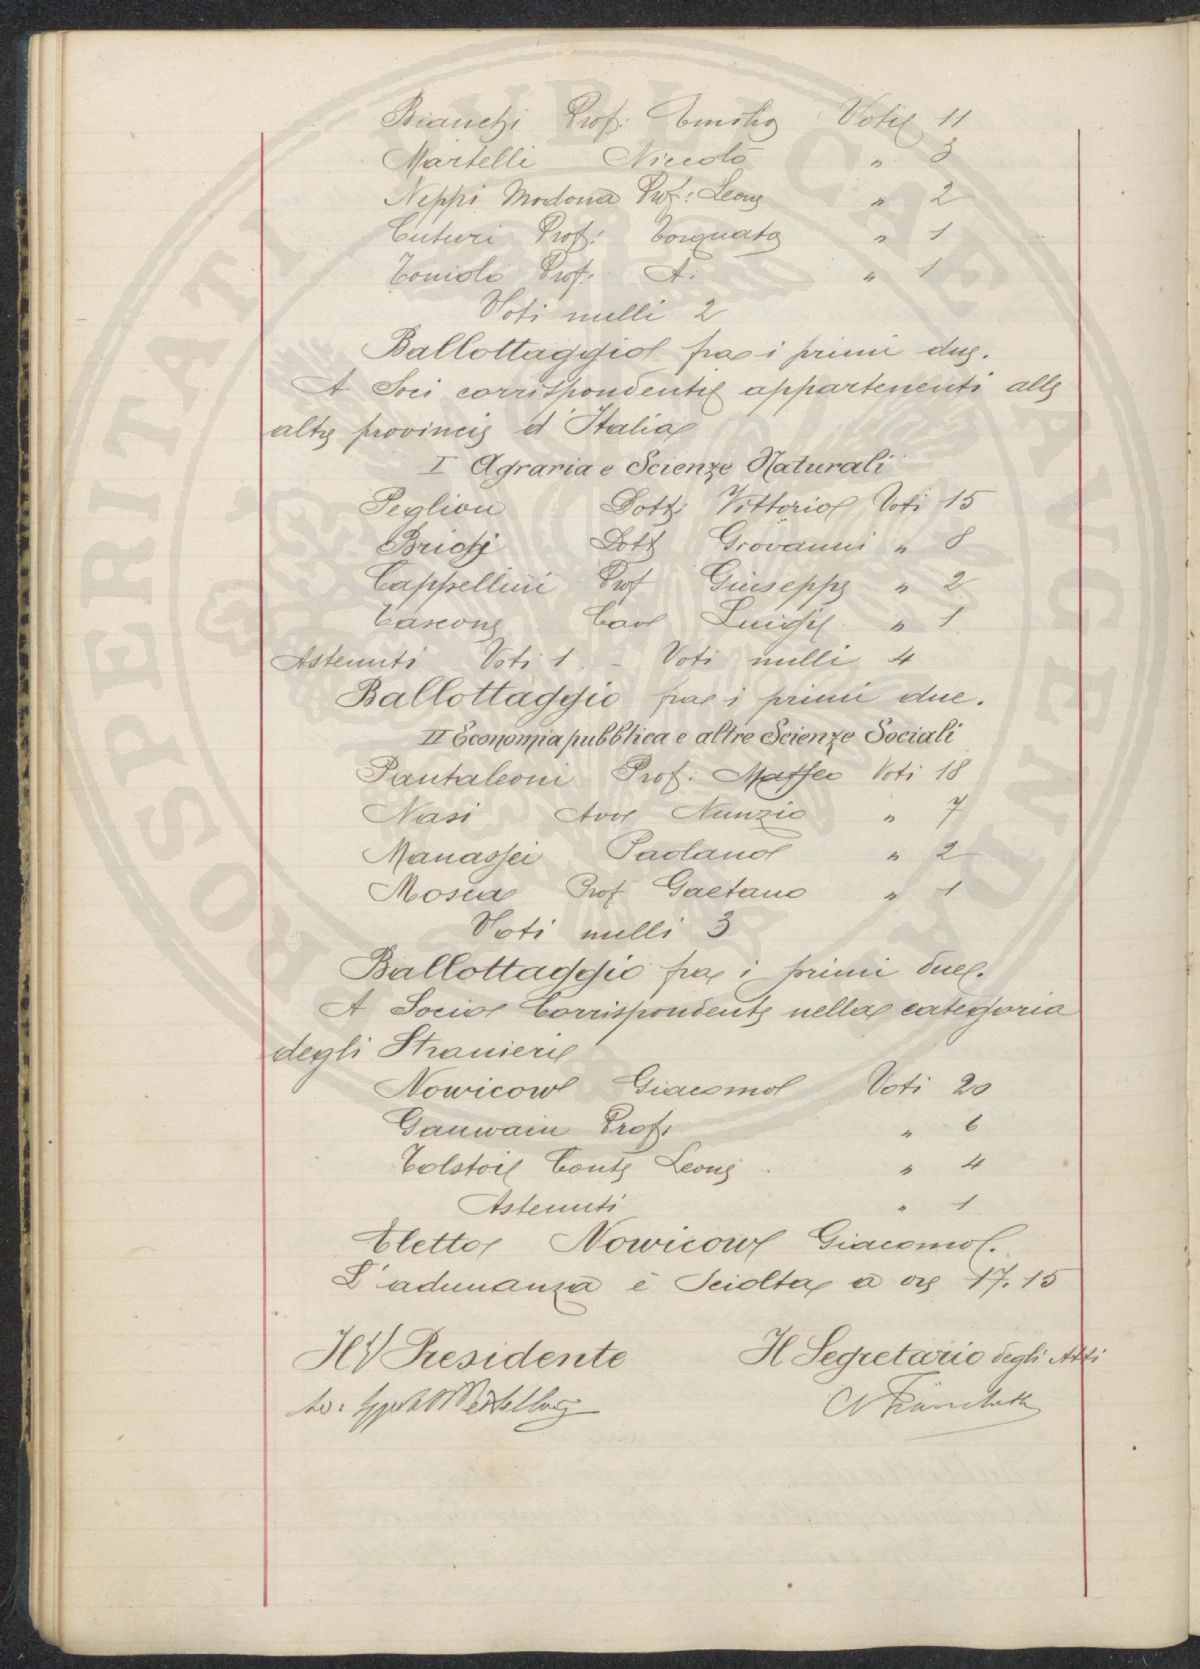 Bianchi Prof: Emilio Voti 11
Martelli Niccolò " 3
Neppi Modona Prof: Leone " 2
Cuturi Prof: Torquato " 1
Toniolo Prof. A. " 1
Voti nulli 2
Ballottaggio fra i primi due.
A Soci corrispondenti appartenenti alle
altre provincie d'Italia
I Agraria e Scienze Naturali
Peglion Dott: Vittorio Voti 15
Briosi Dott Giovanni " 8
Cappellini Prof Giuseppe " 2
Cascone Cav Luigi " 1
Astenuti Voti 1 - Voti nulli 4
Ballottaggio fra i primi due.
II Economia pubblica e altre Scienze Sociali
Pantaleoni Prof. Maffeo Voti 18
Nasi Avv Nunzio " 7
Manassei Paolano " 2
Mosca Prof Gaetano " 1
Voti nulli 3
Ballottaggio fra i primi due.
A Socio Corrispondente nella categoria
degli Stranieri
Nowicow Giacomo Voti 20
Gauwain Prof: " 6
Tolstoi Conte Leone " 4
Astenuti " 1
Eletto Nowicow Giacomo.
L'adunanza è sciolta a ore 17.15
Il V Presidente Il Segretario degli Atti
PROSPERITATI PUBLICAE AUGENDAE